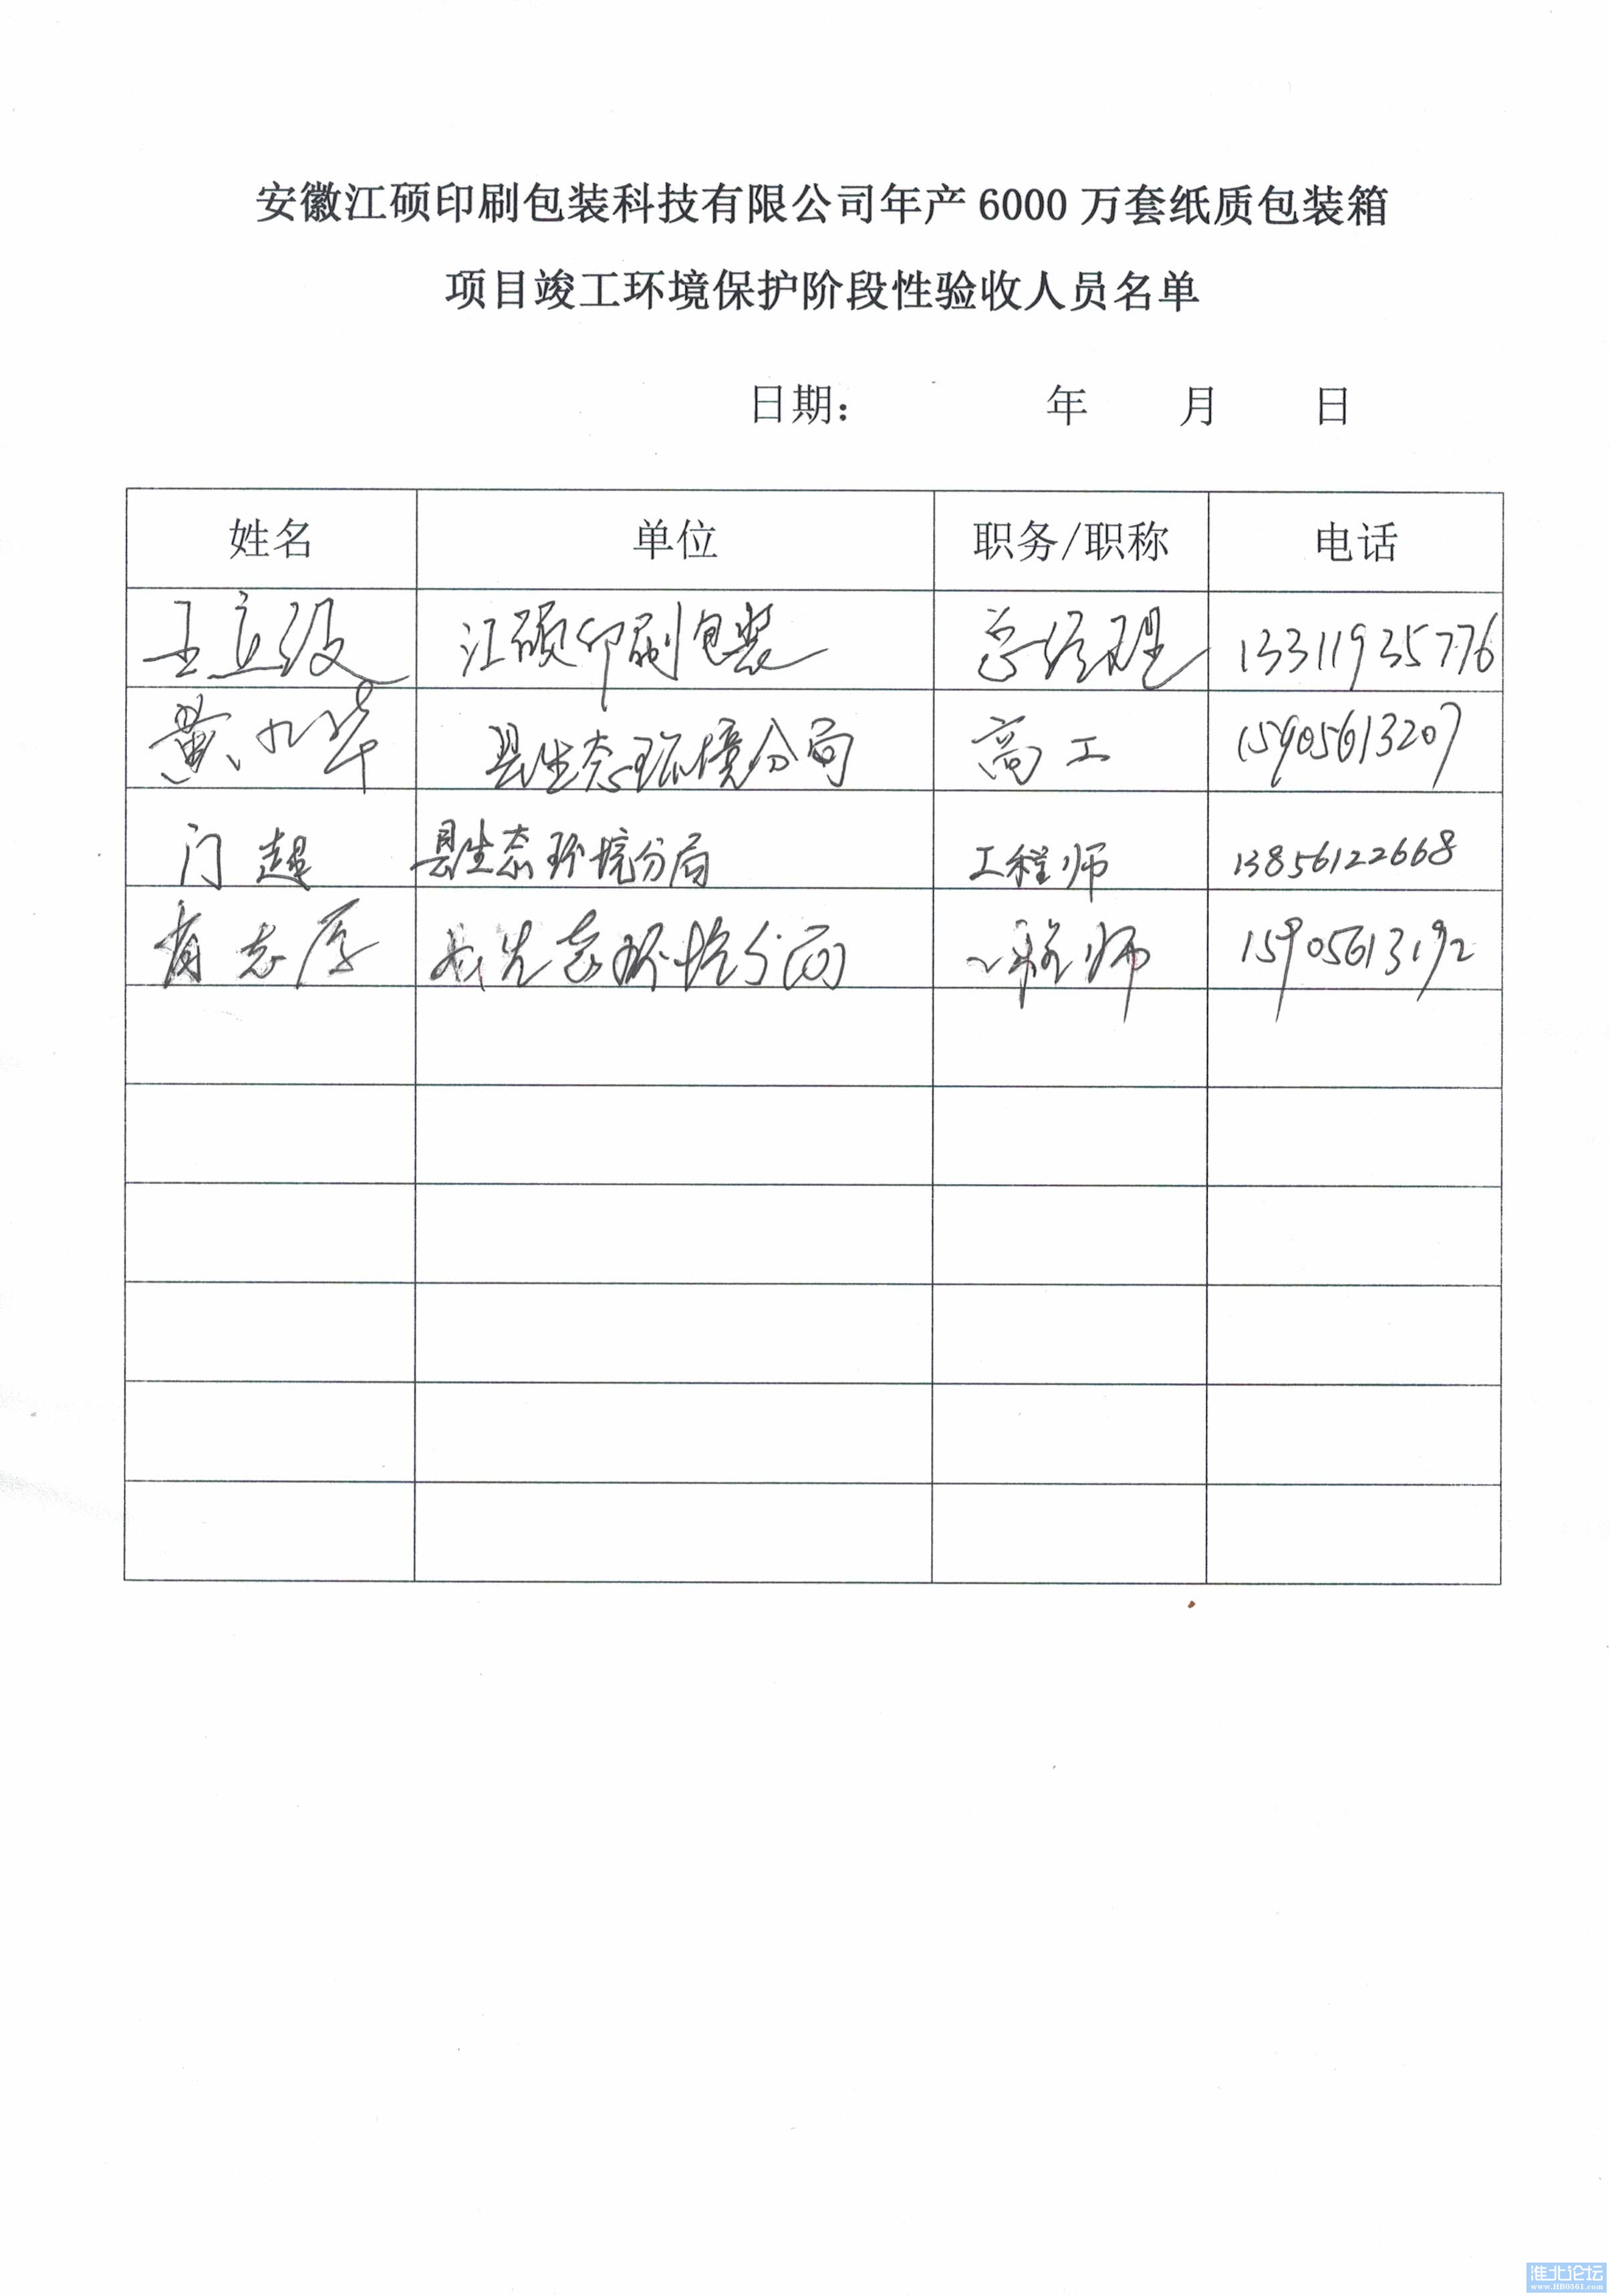 安徽江硕印刷包装科技有限公司年产 6000 万套纸质包装箱
项目竣工环境保护阶段性验收人员名单
日期： 年 月 日
姓名 单位 职务/职称 电话
王立 江硕印刷包装 总经理 13311935776
黄 华 县生态环境分局 高工 15905613207
门超 县生态环境分局 工程师 13856122668
志厚 县生态环境分局 工程师 15905613192
淮北论坛
www.HB0561.com